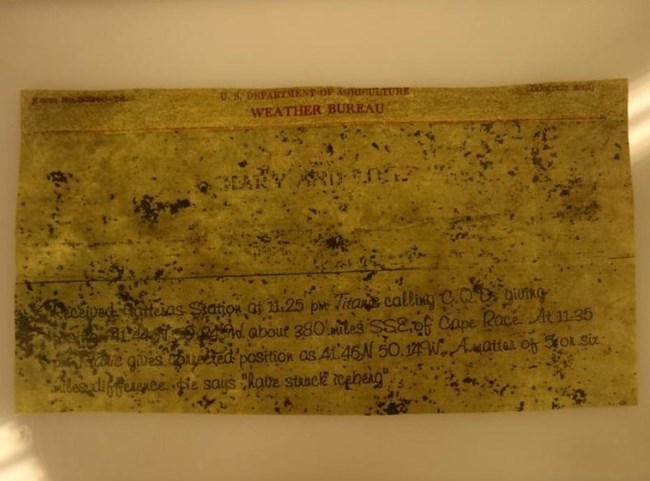 U. S. DEPARTMENT OF AGRICULTURE
WEATHER BUREAU
Received Hatteras Station at 11.25 pm Titanic calling C.Q.D. giving
41.44N about 380 miles SSE of Cape Race. At 11.35
Titanic gives corrected position as 41.46N 50.14W. A matter of 5 or six
miles difference. He says "have struck iceberg".